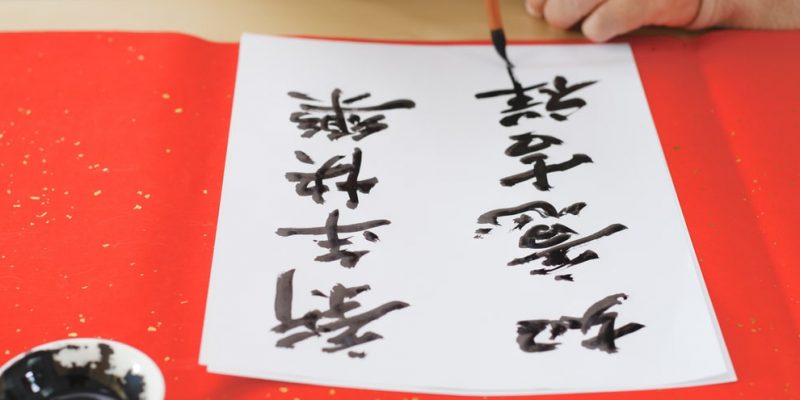 新年快樂
如意吉祥